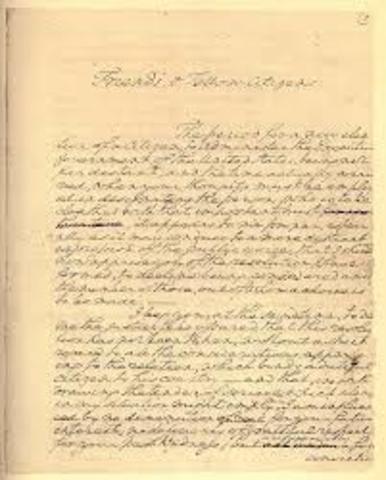 Friends & Fellow-Citizens
The period for a new elec-
tion of a Citizen, to administer the Executive
government of the United States, being not
far distant, and the time actually arri-
ved, when your thoughts must be employ-
ed in designating the person, who is to be
cloathed with that important trust,
it appears to me proper, especi-
ally as it may conduce to a more distinct
expression of the public voice, that I should
now apprise you of the resolution I have
formed, to decline being considered among
the number of those, out of whom a choice is
to be made.
I beg you, at the same time, to do
me the justice to be assured that this resolu-
tion has not been taken, without a strict
regard to all the considerations apper-
to the relation, which binds a dutiful
citizen to his country — and that, in with
drawing the tender of service which silence
in my situation might imply, I am influen-
ced by no diminution of zeal for your future
interest, no deficiency of grateful respect
for your past kindness; but